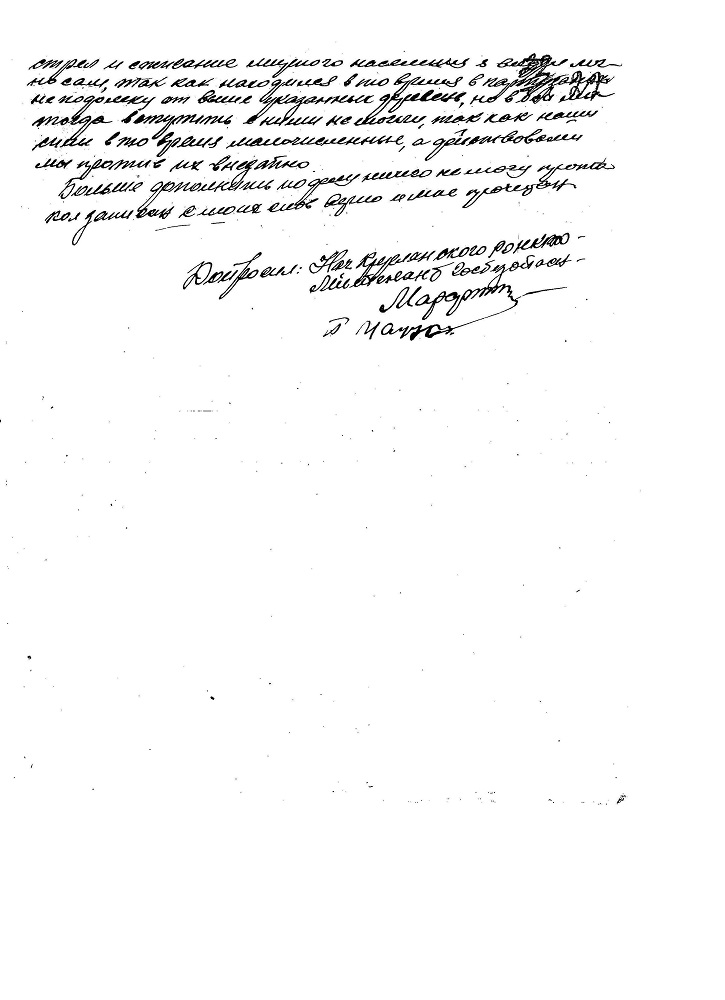 стрел и сжигание мирного населения я видел лич-
но сам, так как находился в то время в
не подолеку от выше указанных деревень, но в бой мы
тогда вступить с ними не могли, так как наши
сили в то время малочисленные, а действовали
мы против их внезапно
Больше дополнить по делу ничего не могу прото-
кол записан с моих слов верно и мне прочитан
Допросил: Нач Круглянского РО НКГБ -
Лейтенант Госбезопасн -